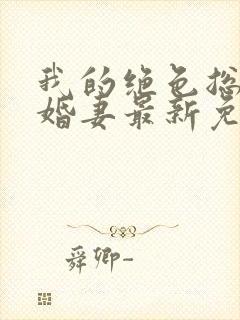 我的绝色总
婚妻最新免
舜卿-